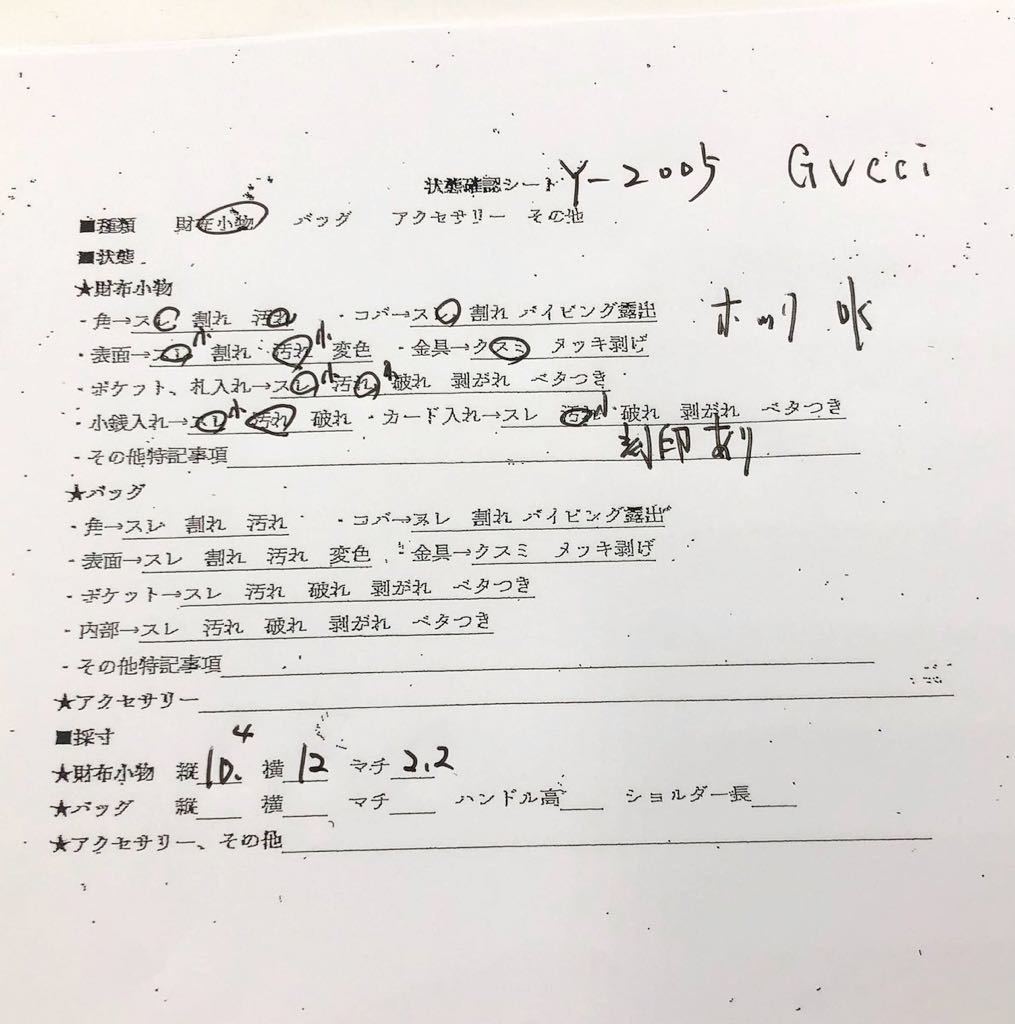 状態確認シート Y-2005 Gvcci
■種類 財布小物 バッグ アクセサリー その他
■状態
★財布小物
・角→スレ 割れ 汚れ ・コバ→スレ 割れ パイピング露出 ホック ok
・表面→スレ小 割れ 汚れ小 変色 ・金具→クスミ メッキ剥げ
・ポケット、札入れ→スレ小 汚れ小 破れ 剥がれ ベタつき
・小銭入れ→スレ小 汚れ 破れ ・カード入れ→スレ 汚れ小 破れ 剥がれ ベタつき
・その他特記事項 刻印あり
★バッグ
・角→スレ 割れ 汚れ ・コバ→スレ 割れ パイピング露出
・表面→スレ 割れ 汚れ 変色 ・金具→クスミ メッキ剥げ
・ポケット→スレ 汚れ 破れ 剥がれ ベタつき
・内部→スレ 汚れ 破れ 剥がれ ベタつき
・その他特記事項
★アクセサリー
■採寸
★財布小物 縦10.4 横12 マチ2.2
★バッグ 縦 横 マチ ハンドル高 ショルダー長
★アクセサリー、その他